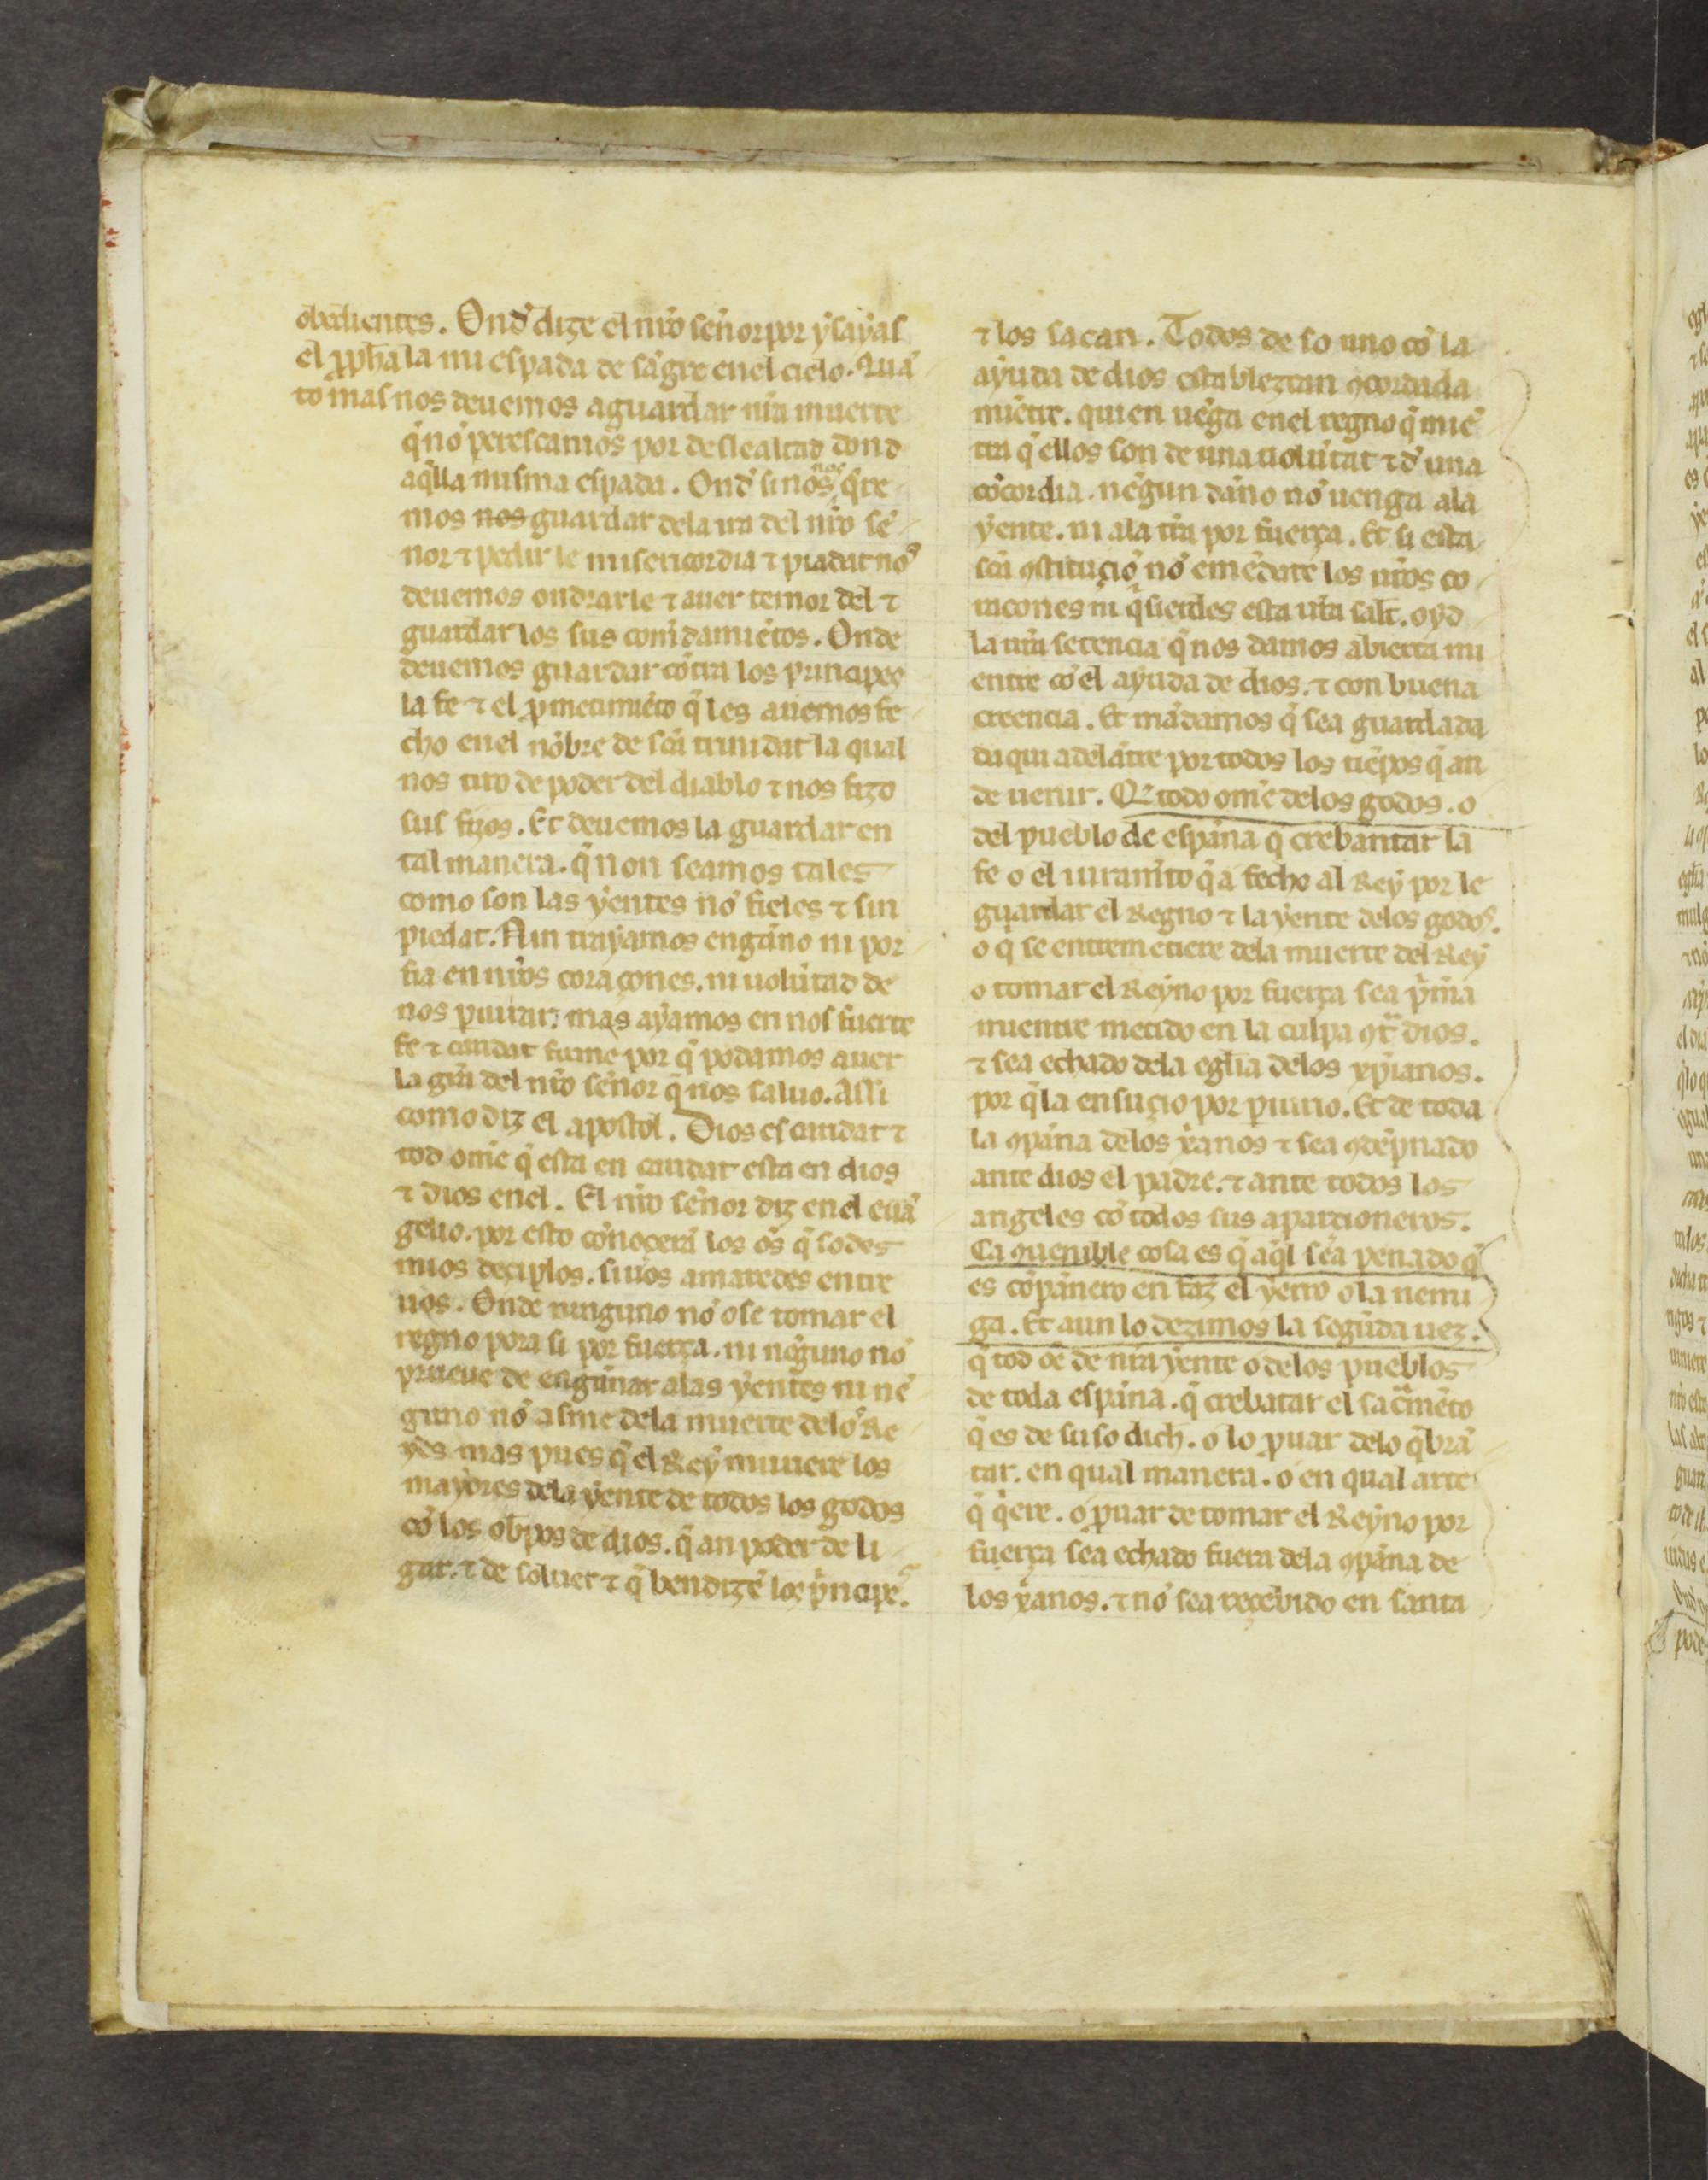 obedientes. Ond̾ dize el nr̃o señor por ysayas
el ꝓph̃a la mi espada de sãgre en el cielo. Quã
to mas nos deuemos aguardar nr̃a muerte
q̃ nõ perescamos por deslealtad dond
aq̃lla misma espada. Ond̾ si nos nõs q̃re
mos nos guardar dela ira del nr̃o se
ñor ⁊ pedir le misericordia ⁊ piadat nos
deuemos ondrarle ⁊ auer temor del ⁊
guardar los sus com̃damiẽtos. Onde
deuemos guardar cõtra los principes
la fe ⁊ el ꝓmetimiẽto q̃ les auemos fe
cho en el nõbre de sc̃a trinidat la qual
nos tiro de poder del diablo ⁊ nos fizo
sus fijos. Et deuemos la guardar en
tal manera. q̃ non seamos tales
como son las yentes nõ fieles ⁊ sin
piedat. Nin trayamos engãno ni por
fia en nr̃os coraçones. ni uolũtad de
nos ꝑiurar. mas ayamos en nos fuerte
fe ⁊ caridat firme por q̃ podamos auer
la gr̃a del nr̃o señor q̃ nos saluo. Assi
como diz el apostol. Dios es caridat ⁊
tod om̃e q̃ esta en caridat esta en dios
⁊ dios en el. El nr̃o señor diz en el euã
gelio. por esto cõnoçerã los oẽs q̃ sodes
mios deçiplos. si uos amaredes entre
uos. Onde ninguno nõ ose tomar el
regno pora si por fuerça. ni nẽguno nõ
prueue de engãnar alas yentes ni nẽ
guno nõ asme dela muerte delos Re
yes. mas pues q̃ el Rey muriere los
mayores dela yente de todos los godos
cõ los obĩpos de dios. q̃ an poder de li
gar. ⁊ de soluer ⁊ q̃ bendizẽ los p̃ncipes.
⁊ los sacan. Todos de so uno cõ la
ayuda de dios establezcan ꝯcordada
miẽtre. quien uẽga en el regno q̃ miẽ
tra q̃ ellos son de una uolũtat ⁊ d̾ una
cõcordia. nẽgun dãno nõ uenga ala
yente. ni ala tr̃ra por fuerça. Et si esta
sc̃a ꝯstituçiõ nõ emẽdare los nr̃os co
racones ni q̃sierdes esta ur̃a salt. oyd
la nr̃a setencia q̃ nos damos abierta mi
entre cõ el ayuda de dios. ⁊ con buena
creencia. Et mãdamos q̃ sea guardada
da qui adelãtre por todos los tiẽpos q̃ an
de uenir. Q̃ todo om̃e delos godos. o
del pueblo de espãna q̃ crebantar la
fe o el iuramẽto q̃ a fecho al Rey por le
guardar el Regno ⁊ la yente delos godos.
o q̃ se entremetiere dela muerte del Rey
o tomar el Reyno por fuerça sea p̃m̃a
mientre metido en la culpa ꝯtra dios.
⁊ sea echado dela egl̃ia delos xp̃ianos.
por q̃ la ensuçio por ꝑiurio. Et de toda
la ꝯpãna delos xp̃anos ⁊ sea ꝯdẽpnado
ante dios el padre. ⁊ ante todos los
angeles cõ todos sus aparcioneros.
Ca ꝯuenible cosa es q̃ aq̃l sea penado q̃
es cõpãnero en faz el yerro o la nemi
ga. Et aun lo dezimos la segũda uez.
q̃ tod oẽ de nr̃a yente o delos pueblos
de toda espãna. q̃ crebãtar el sacramẽto
q̃ es de suso dich. o lo ꝓuar delo q̃brã
tar. en qual manera. o en qual arte
q̃ q̃ere. o ꝓuar de tomar el Reyno por
fuerça sea echado fuera dela ꝯpãna de
los xp̃anos. ⁊ nõ sea reçebido en santa